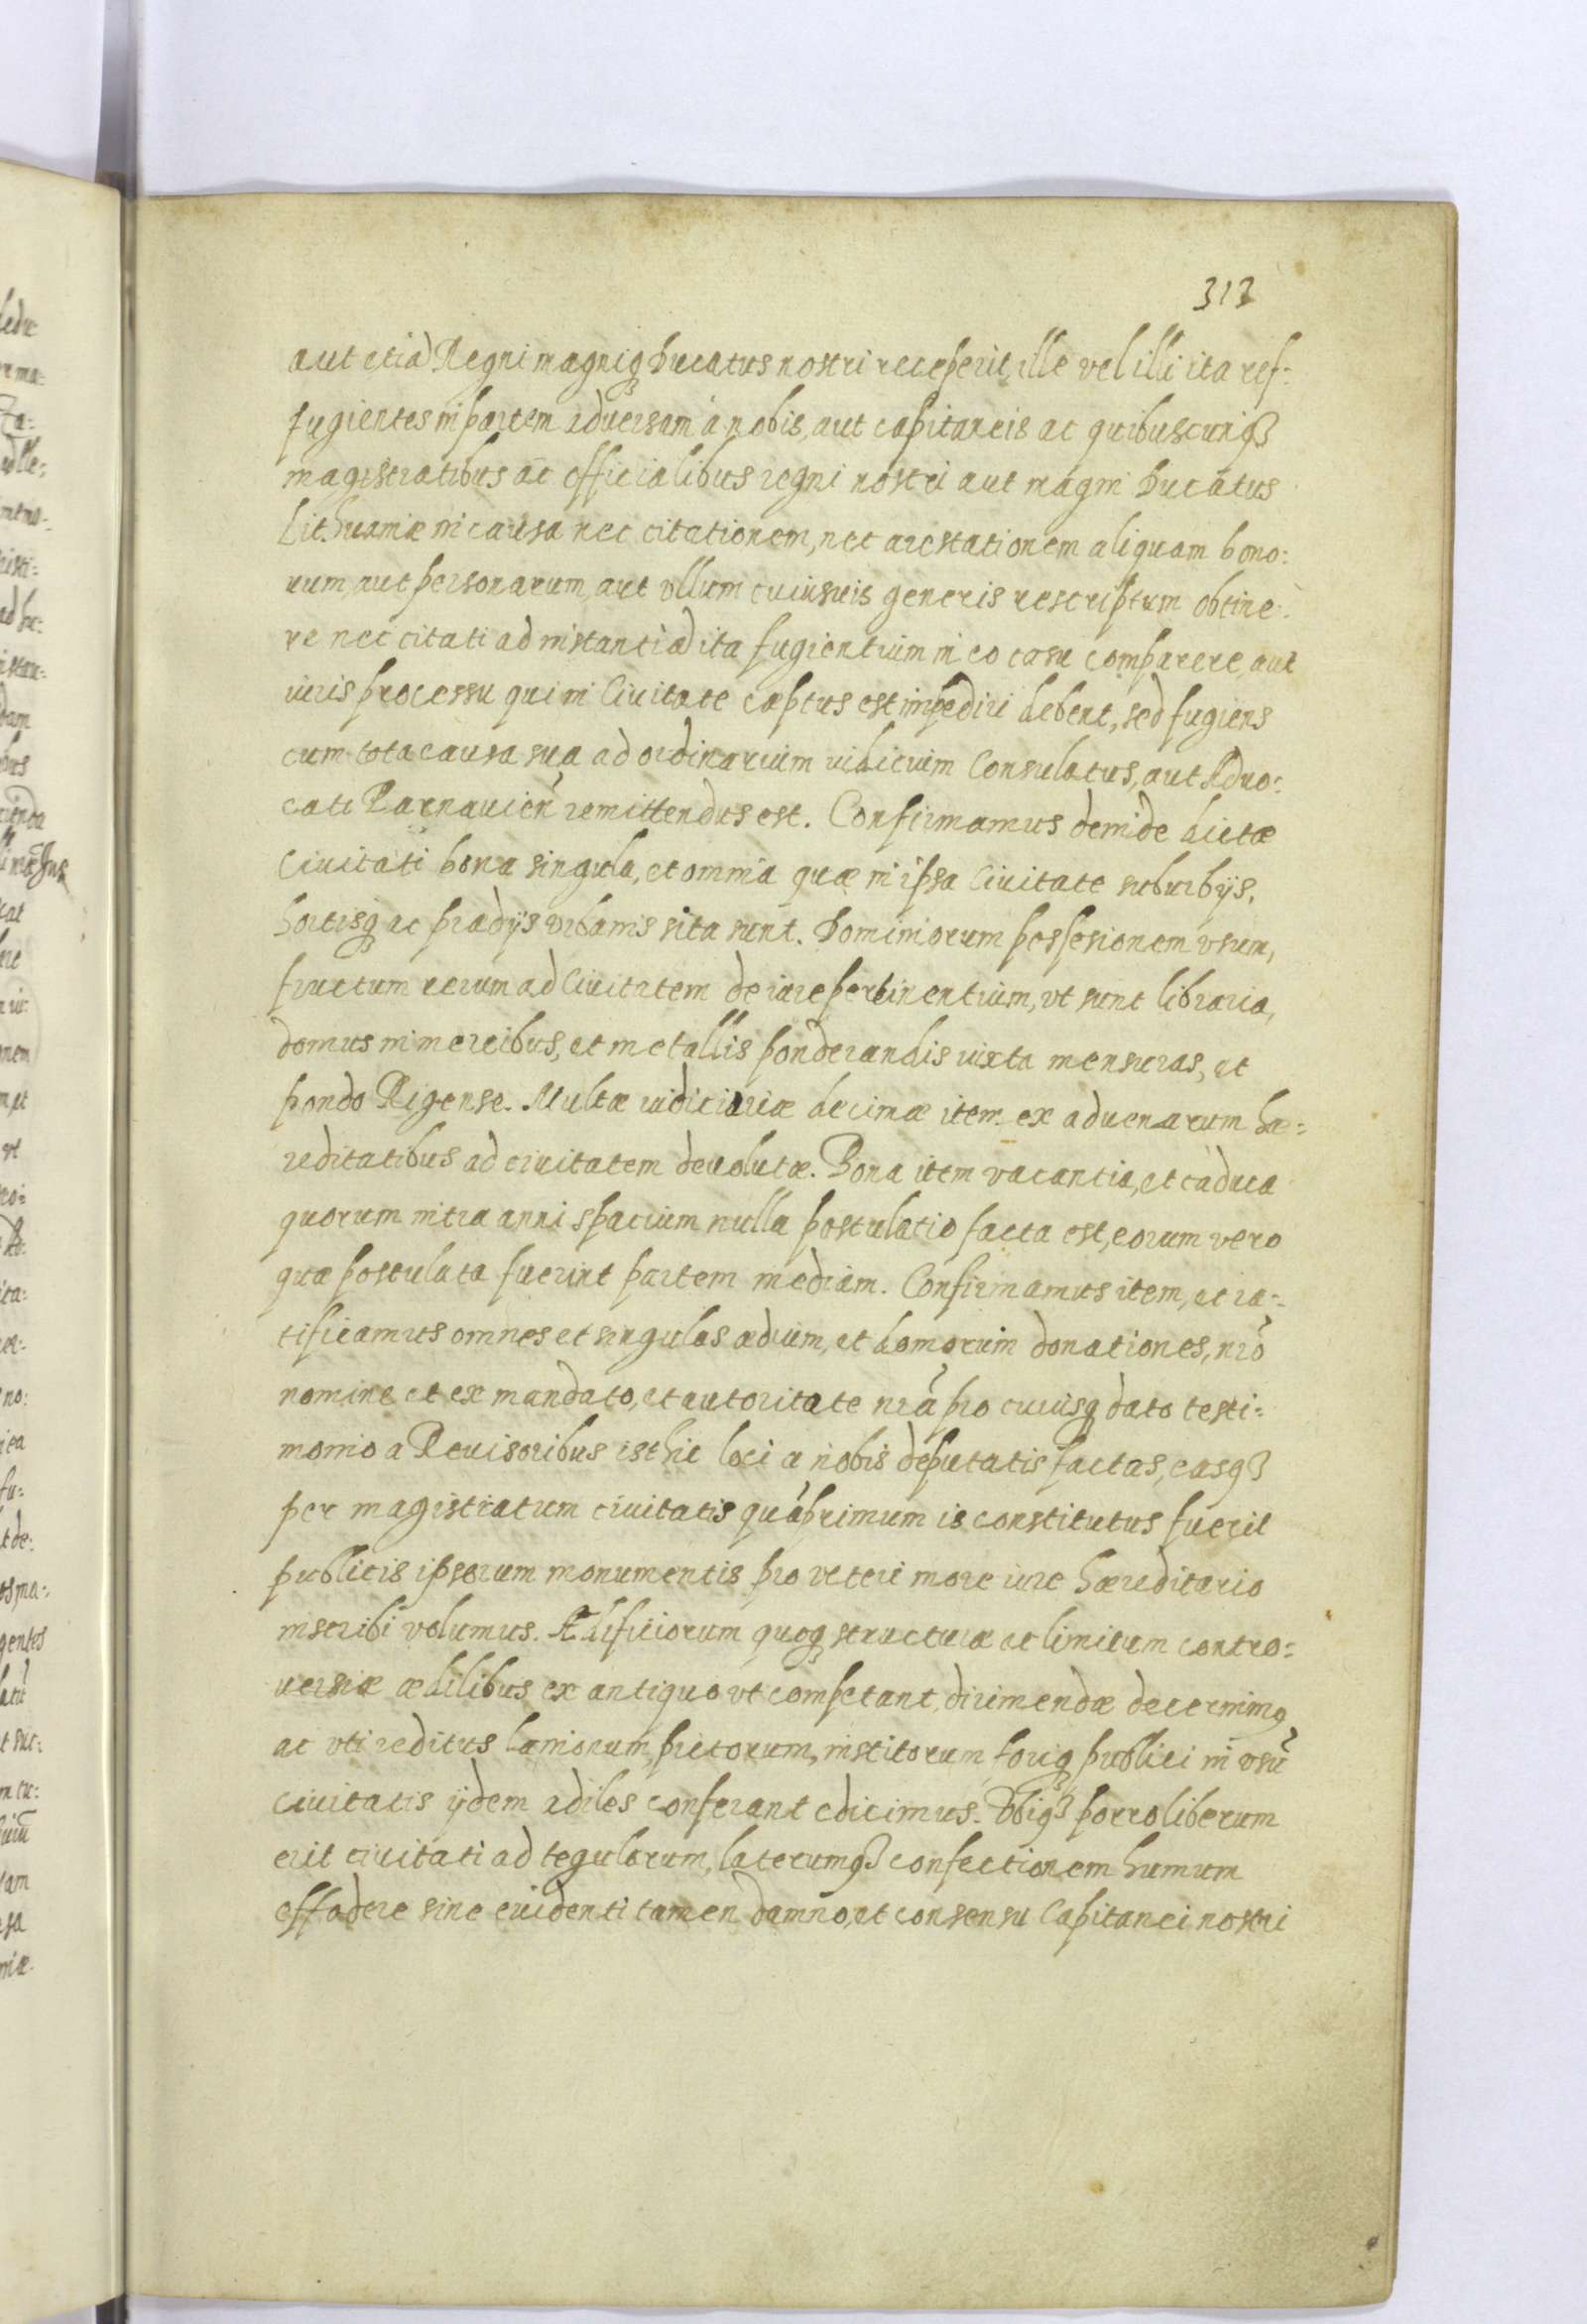 313
aut etiã Regni magniq3 Ducatus nostri receperit, ille vel illi ita ref=
fugientes in partem aduersam à nobis, aut capitaneis ac quibuscunq3
magistratibus ac officialibus regni nostri aut magni Ducatus
Lithuaniæ in causa nec citationem, nec arestationem aliquam bono=
rum, aut personarum, aut vllum cuiusuis generis rescriptum obtine=
re nec citati ad instantiã ita fugientium in eo casu comparere, aut
iuris processu qui in Ciuitate cæptus est impediri debent, sed fugiens
cum tota causa sua ad ordinarium iudicium Consulatus, aut Aduo=
cati Parnauień remittendus est. Confirmamus deinde dictæ
Ciuitati bona singula, et omnia quæ in ipsa Ciuitate suburbijs,
hortisq3 ac prædijs vrbanis sita sunt. Dominiorum possesionem vsum,
fructum rerum ad Ciuitatem de iure pertinentium, vt sunt libraria,
domus in mercibus, et metallis ponderandis iuxta mensuras, et
pondo Rigense. Multæ iudiciariæ decimæ item ex aduenarum hæ=
reditatibus ad ciuitatem deuolutæ. Bona item vacantia, et caduca
quorum intra anni spacium nulla postulatio facta est, eorum vero
quæ postulata fuerint partem mediam. Confirmamus item, et ra=
tificamus omnes et singulas ædium, et domorum donationes, nrõ
nomine et ex mandato, et autoritate nrã pro cuiusq3 dato testi=
monio a Reuisoribus isthic loci a nobis deputatis factas, easq3
per magistratum ciuitatis quãprimum is constitutus fuerit
publicis ipsorum monumentis pro veteri more iure hæreditario
inscribi volumus. Ædificiorum quoq3 structuræ et limitum contro=
uersiæ ædilibus ex antiquo vt competant, dirimendæ decernimq
ac vti reditus lanionum, pictorum, institorum foriq3 publici in vsũ
ciuitatis ijdem ædiles conferant edicimus. Vbiq3 porro liberum
erit ciuitati ad tegularum, laterumq3 confectionem humum
effodere sine euidenti tamen damno, et consensu Capitanei nostri